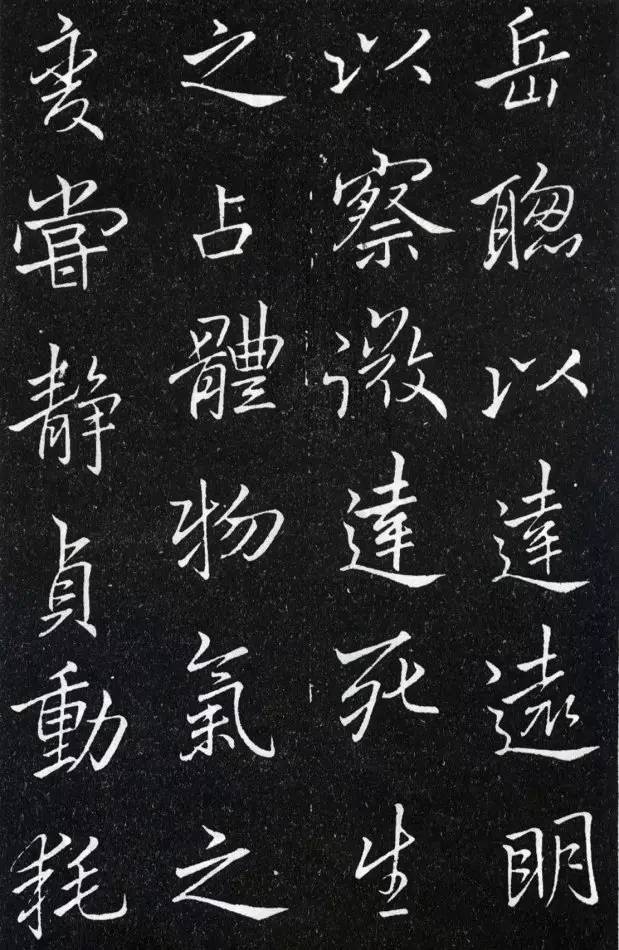 岳聰以達遠明
以察微達死生
之占體物氣之
變嘗静貞動耗